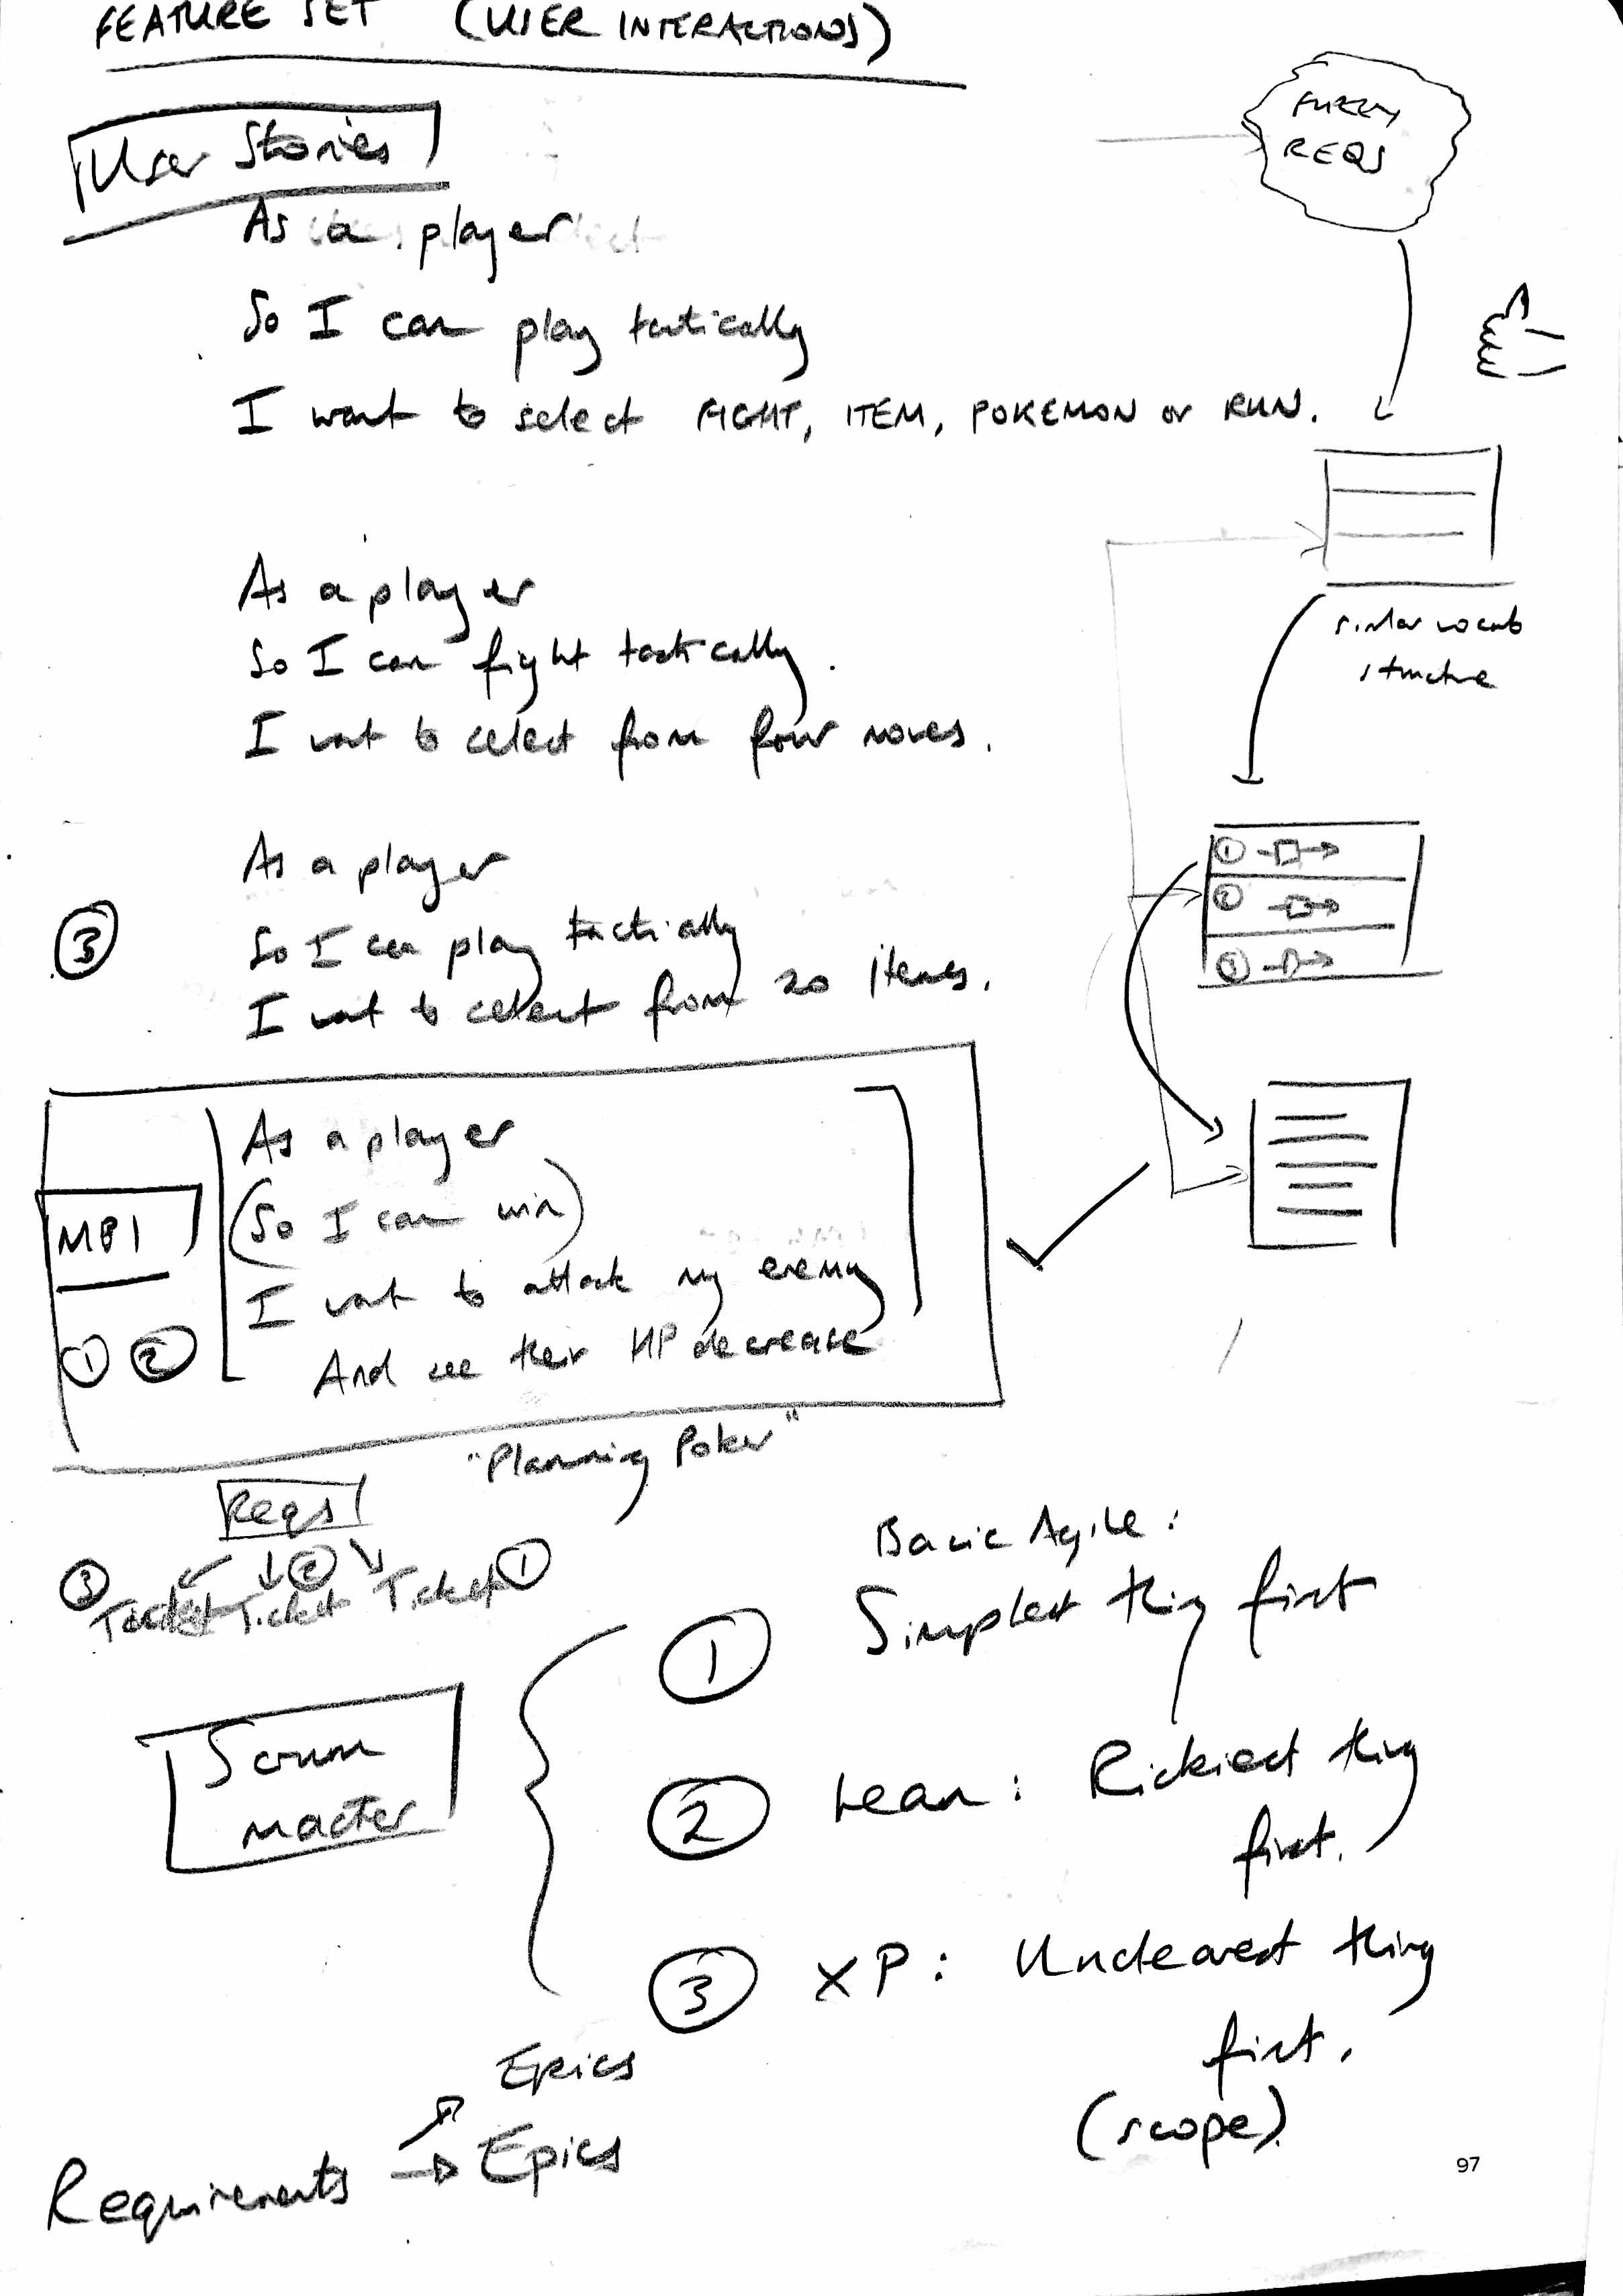 FEATURE SET (USER INTERACTIONS)
User Stories
As a player
So I can play tactically
I want to select FIGHT, ITEM, POKEMON or RUN.
FUZZY
REQS
As a player
So I can fight tactically.
I want to select from four moves.
similar vocab
structure
As a player
③ So I can play tactically
I want to select from 20 items.
① 
② 
③ 
As a player
(So I can win)
I want to attack my enemy
And see their HP decrease
① ②
"Planning Poker"
Reqs
③ Ticket Ticket ② Ticket ①
Scrum
master
Basic Agile:
① Simplest thing first
② Lean: Riskiest thing
first.
③ XP: Unclearest thing
first.
(scope)
Epics
Requirements → Epics
97